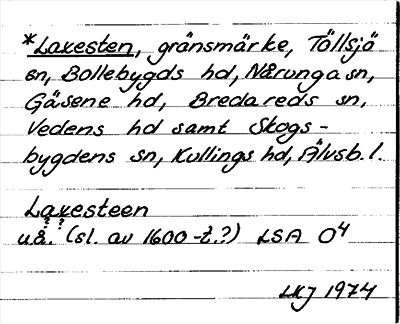 *Laxesten, gränsmärke, Töllsjö
sn, Bollebygds hd, Nårunga sn,
Gäsene hd, Bredareds sn,
Vedens hd samt Skogs-
bygdens sn, Kullings hd, Älvsb. l.
Laxesteen
? ?
u.å. (sl. av 1600-t.?) LSA O4
LKJ 1974